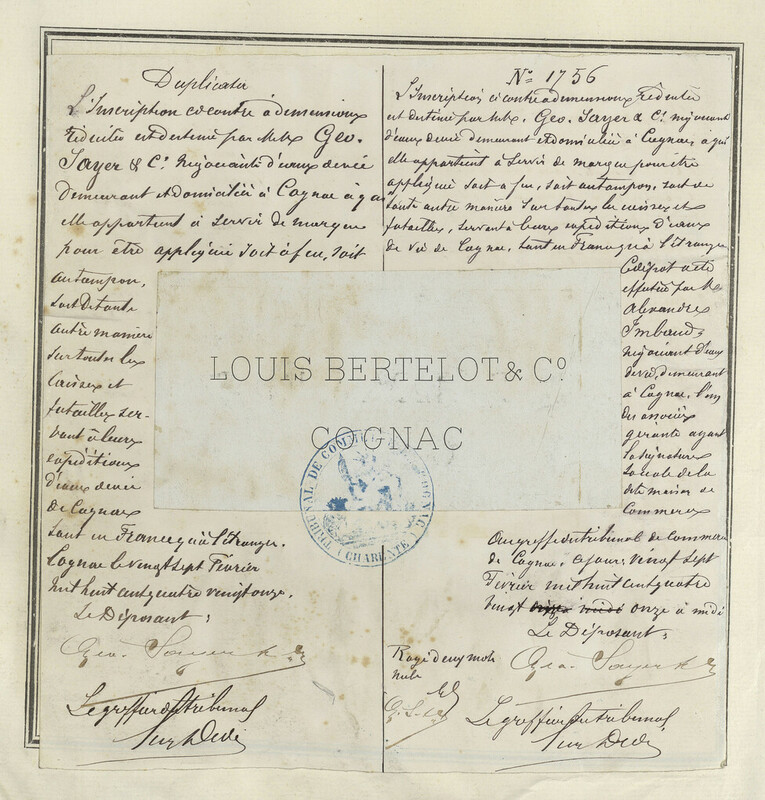 Duplicata
L'Inscription ci contre à dimensions
réduites est destiné par MM. Geo.
Sayer & Co. Négociants d'eaux de vie
demeurant et domiciliés à Cognac à qui
elle appartient à servir de marque
pour être appliquée soit à feu, soit
au tampon,
soit de toute
autre manière
sur toutes les
caisses et
futailles ser-
vant à leurs
expéditions
d'eaux de vie
de Cognac
tant en France qu'à l'étranger.
Cognac le vingt sept Février
mil huit cent quatre vingt onze.
Le Déposant:
Geo. Sayer & Co
Le greffier du tribunal
No 1756
L'Inscription ci contre à dimensions réduites
est destiné par MM. Geo. Sayer & Co. négociants
d'eaux de vie demeurant et domiciliés à Cognac, à qui
elle appartient à servir de marque pour être
appliqué soit à feu, soit au tampon, soit de
toute autre manière sur toutes les caisses et
futailles, servant à leurs expéditions d'eaux
de vie de Cognac, tant en France qu'à l'étranger
Ce dépôt a été
effectué par M.
Alexandre
Imbaud,
négociant d'eaux
de vie, demeurant
à Cognac, l'un
des associés
gérants ayant
la signature
sociale de la
dite maison de
Commerce
LOUIS BERTELOT & Co.
COGNAC
TRIBUNAL DE COMMERCE COGNAC
(CHARENTE)
Au greffe du tribunal de Commerce
de Cognac, ce jour, vingt sept
Février mil huit cent quatre
vingt onze à midi
Le Déposant:
Rayé deux mots
nuls
Geo. Sayer & Co
G. S. & Co
Le greffier du tribunal